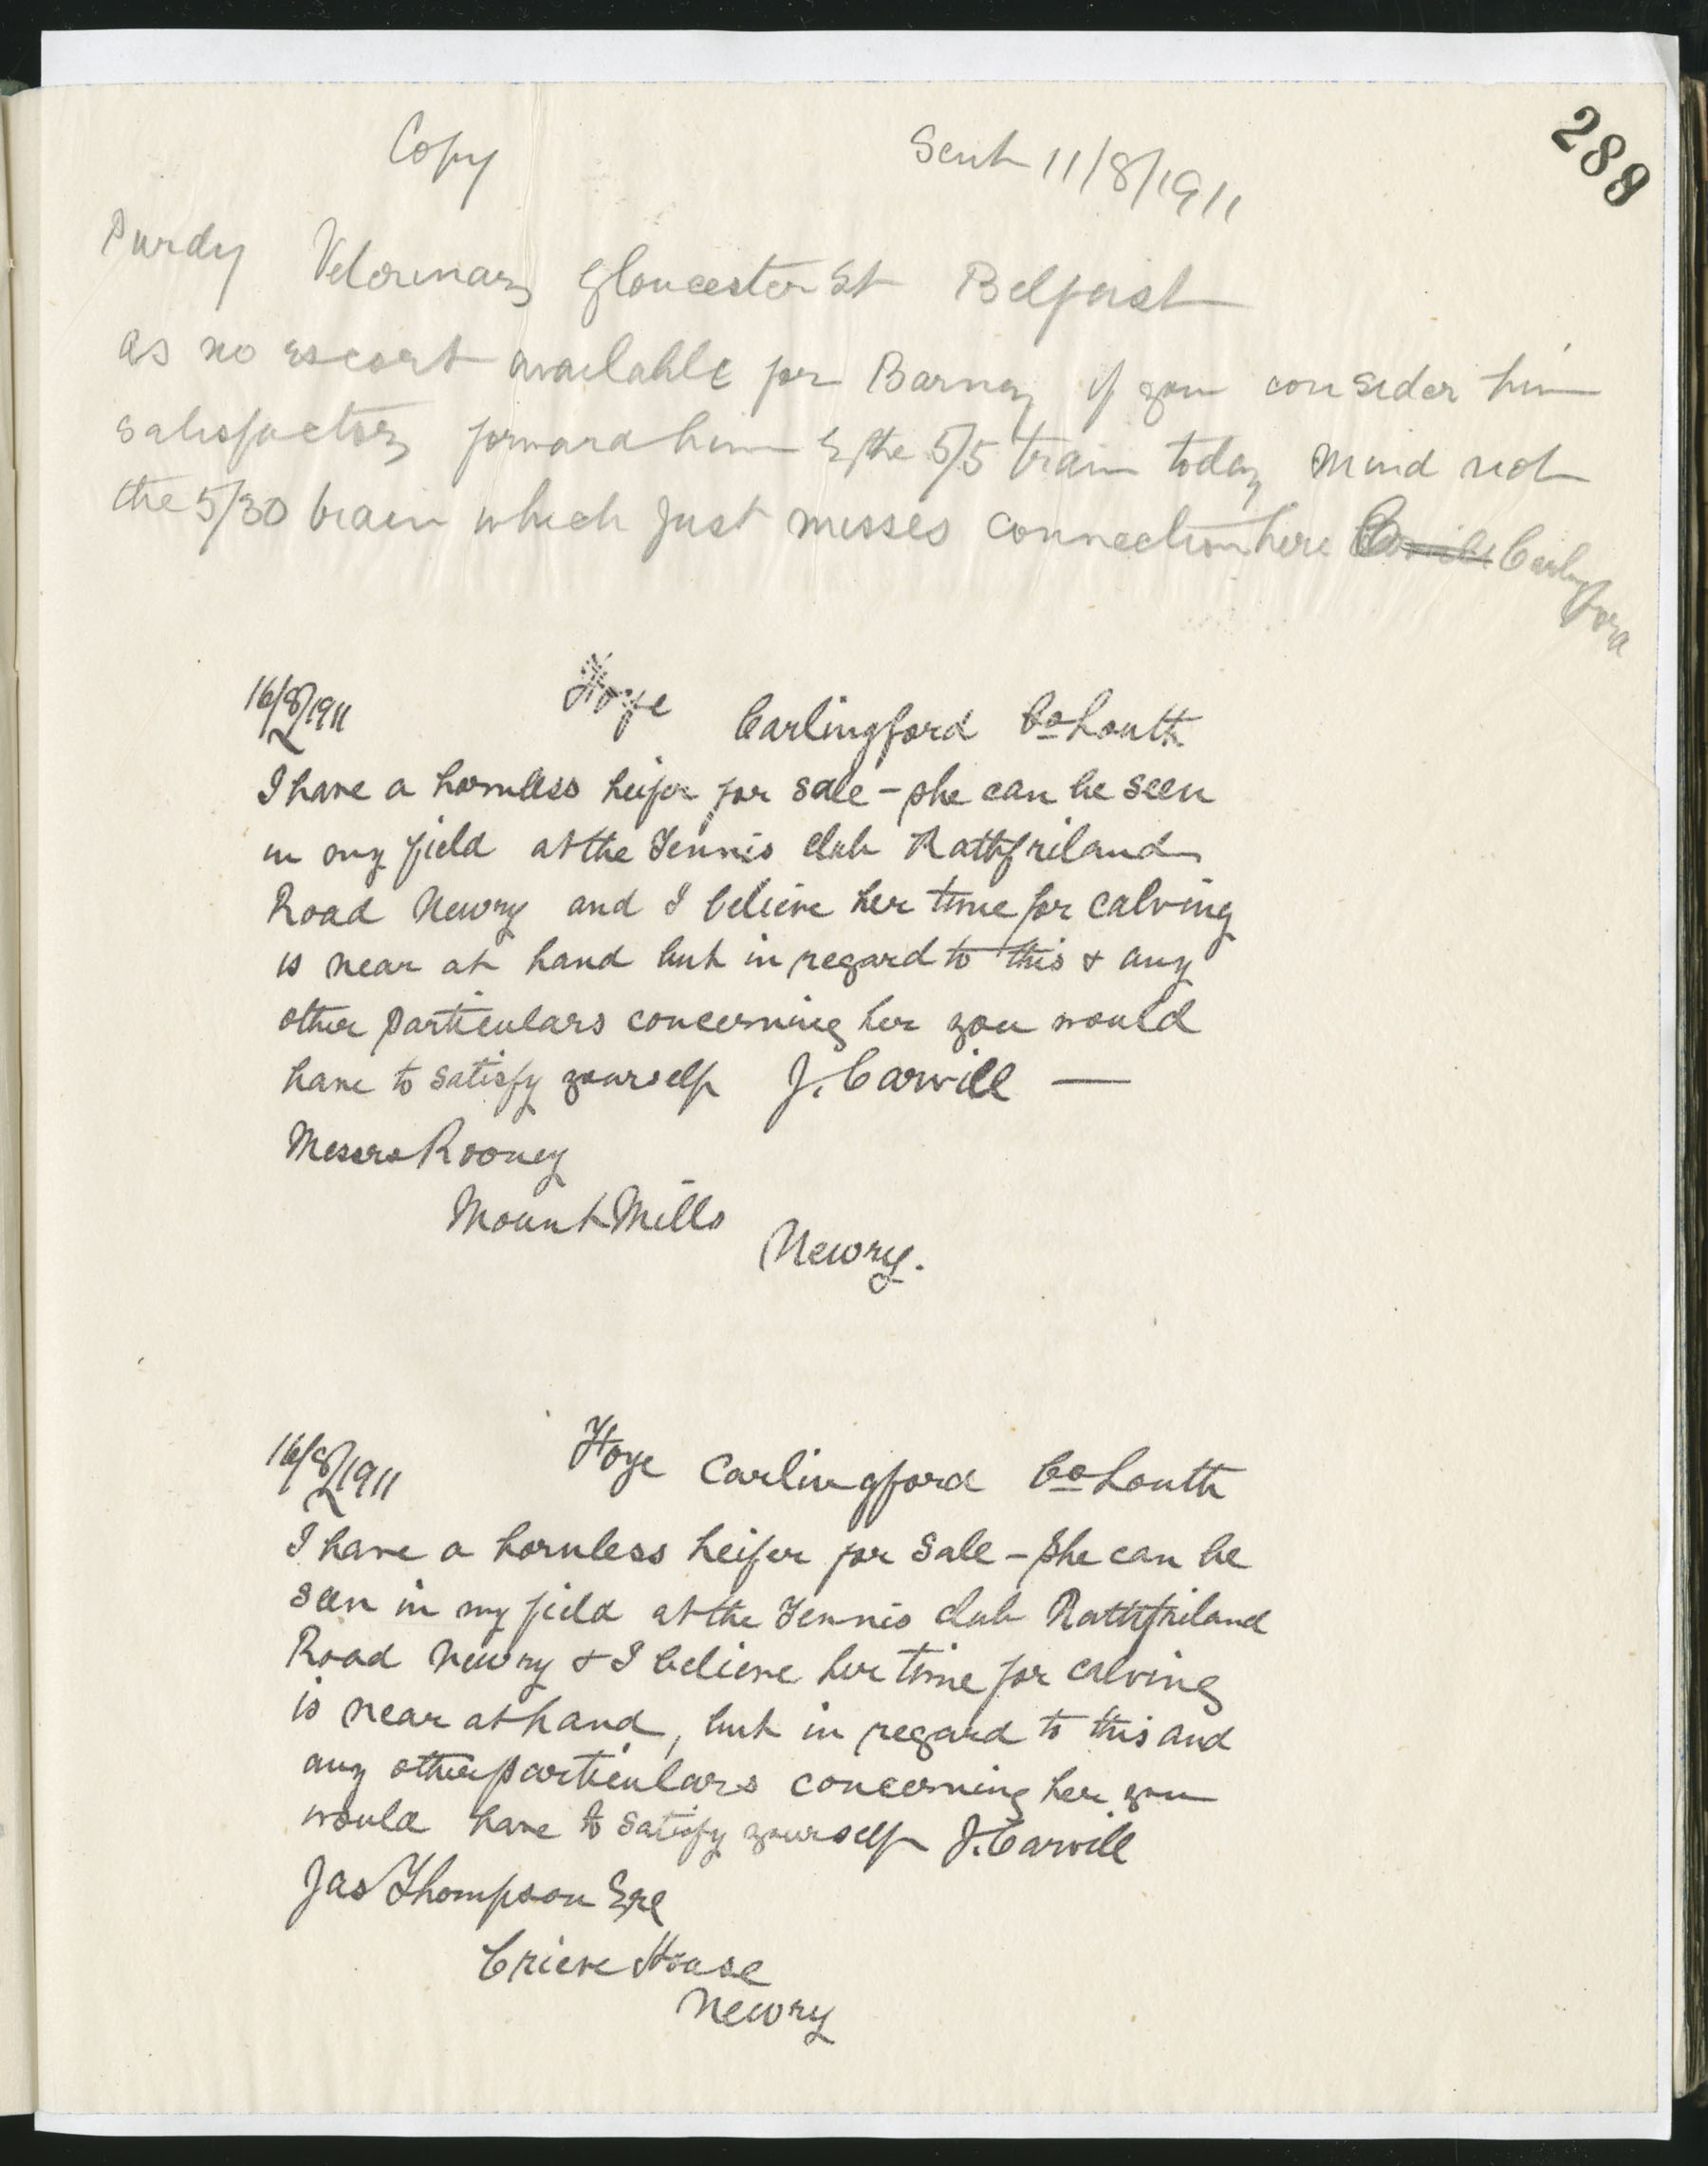 288
Copy Sent 11/8/1911
Purdy Veterinary Gloucester St Belfast
As no escort available for Barney if you consider him
satisfactory forward him by the 5/5 train today mind not
the 5/30 train which just misses connection here Carlingford
16/8/1911 Carlingford Co Louth
I have a hornless heifer for sale - she can be seen
in my field at the Tennis club Rathfriland
Road Newry and I believe her time for calving
is near at hand but in regard to this & any
other particulars concerning her you would
have to satisfy yourself J. Carvill —
Messrs Rooney
Mount Mills
Newry.
16/8/1911 Carlingford Co Louth
I have a hornless heifer for sale - She can be
seen in my field at the Tennis club Rathfriland
Road Newry & I believe her time for calving
is near at hand, but in regard to this and
any other particulars concerning her you
would have to satisfy yourself J. Carvill
Jas Thompson Esqe
Crieve House
Newry